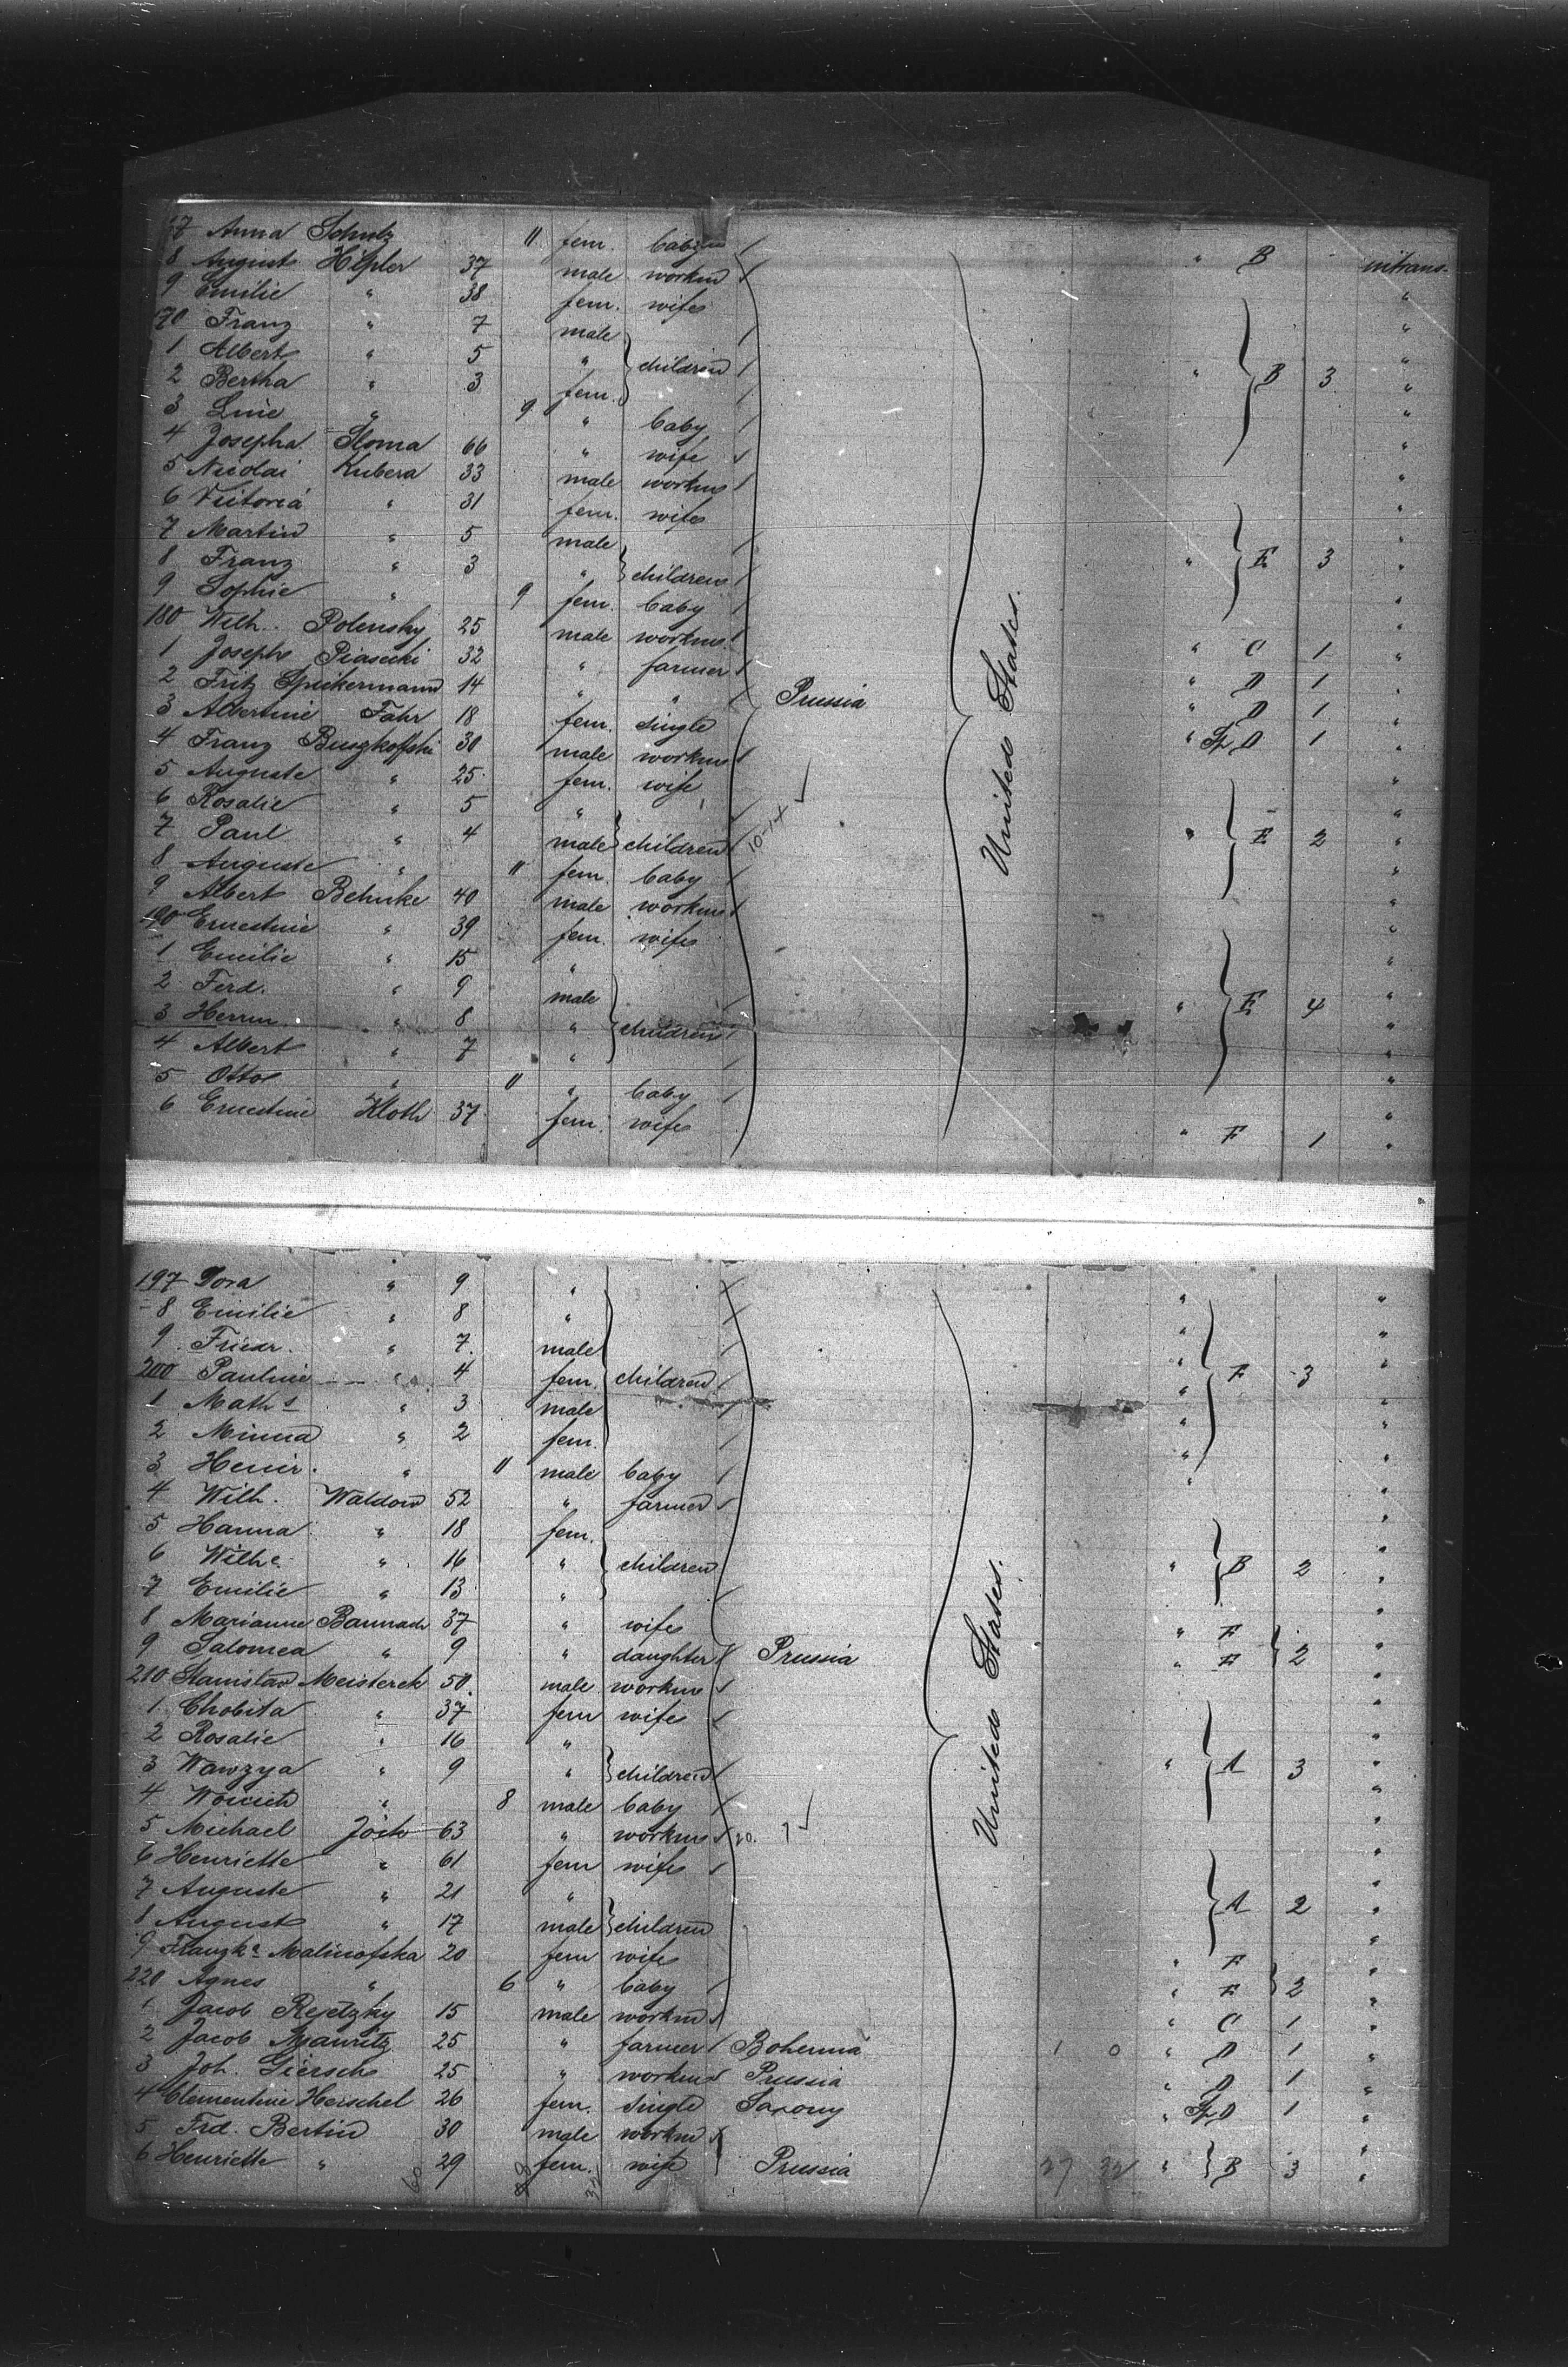 67 Anna Schulz 11 fem. baby " B intrans.
8 August Hipler 37 male workm "
9 Emilie " 38 fem. wife "
170 Franz " 7 male "
1 Albert " 5 " children " B 3 "
2 Bertha " 3 fem. "
3 Line " 9 " baby "
4 Josepha Sloma 66 " wife "
5 Nicolai Kubera 33 male workm "
6 Victoria " 31 fem. wife "
7 Martin " 5 male "
8 Franz " 3 " children " E 3 "
9 Sophie " 9 fem. baby "
180 Wilh. Polensky 25 male workm " C 1 "
1 Joseph Piasecki 32 " farmer " D 1 "
2 Fritz Spickermann 14 " " Prussia United States. " D 1 "
3 Albertine Fahr 18 fem. single " D 1 "
4 Franz Buszkofski 30 male workm "
5 Auguste " 25 fem. wife "
6 Rosalie " 5 " "
7 Paul " 4 male children 10-14 " E 2 "
8 Auguste " 11 fem. baby "
9 Albert Behnke 40 male workm "
190 Ernestine " 39 fem. wife "
1 Emilie " 15 " "
2 Ferd. " 9 male "
3 Herrm. " 8 " children " E 4 "
4 Albert " 7 " "
5 Otto " 11 " baby "
6 Ernestine Kloth 37 fem. wife " F 1 "
197 Dora " 9 " " "
8 Emilie " 8 " " "
9 Friedr. " 7 male " "
200 Pauline " 4 fem. children " F 3 "
1 Maths " 3 male " "
2 Minna " 2 fem. " "
3 Heinr. " 11 male baby " "
4 Wilh. Waldow 52 " farmer "
5 Hanna " 18 fem. "
6 Wilhe " 16 " children " B 2 "
7 Emilie " 13 " "
8 Marianne Bannach 37 " wife " F "
9 Salomea " 9 " daughter Prussia United States. " F 2 "
210 Stanislaw Meisterek 50 male workm "
1 Chobita " 37 fem wife "
2 Rosalie " 16 " "
3 Wawzya " 9 " children " A 3 "
4 " 8 male baby "
5 Michael Jöck 63 " workm 20. 7 "
6 Henriette " 61 fem wife "
7 Auguste " 21 " "
8 August " 17 male children A 2 "
9 Franzka Malinofska 20 fem wife " F "
220 Agnes " 6 " baby " F 2 "
1 Jacob Rejetzky 15 male workm " C 1 "
2 Jacob Mauritz 25 " farmer Bohemia 1 0 " D 1 "
3 Joh. Giersch 25 " workm Prussia " D 1 "
4 Clementine Herschel 26 fem. single Saxony " D 1 "
5 Frd. Bertin 30 male workm "
6 Henriette " 29 fem. wife Prussia 27 32 " B 3 "